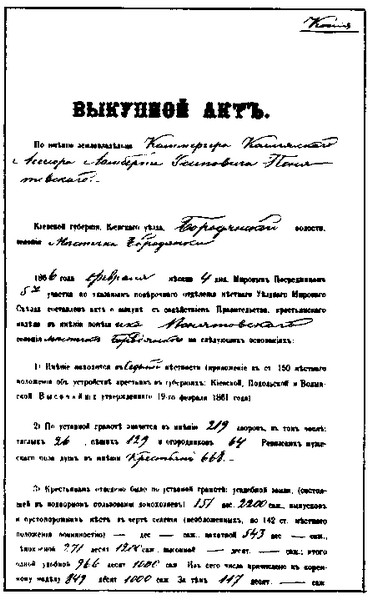 Копія
ВЫКУПНОЙ АКТЪ.
По имѣнію землевладѣльца Камергера
Ассесора Ламберта Осиповича Поня-
товскаго.
Кіевской губерніи, Кіевскаго уѣзда, Бородянской волости,
селенія Мѣстечка Бородянки
1866 года февраля мѣсяца 4 дня. Мировымъ Посредникомъ
5го участка по указанію повѣрочнаго отдѣленія мѣстнаго Уѣзднаго Мироваго
Съѣзда составленъ актъ о выкупѣ съ содѣйствіемъ Правительства, крестьянскаго
надѣла въ имѣніи помѣщика Понятовскаго
селенія мѣстечка Бородянки на слѣдующихъ основаніяхъ:
1) Имѣніе находится въ мѣстности (приложеніе къ ст. 150 мѣстнаго
положенія объ устройствѣ крестьянъ въ губерніяхъ: Кіевской, Подольской и Волын-
ской Высочайше утвержденнаго 19-го февраля 1861 года)
2) По уставной грамотѣ значится въ имѣніи 219 дворовъ, въ томъ числѣ:
тяглыхъ 26, пѣшихъ 129 и огородниковъ 64 Ревизскихъ муже-
скаго пола душъ въ имѣніи Крестьянъ 668.—
3) Крестьянамъ отведено было по уставной грамотѣ: усадебной земли, (состоя-
щей въ подворномъ пользованіи домохозяевъ) 151 дес. 2200 саж., выпусковъ
и пустопорожнихъ мѣстъ въ чертѣ селенія (необложенныхъ, по 142 ст. мѣстнаго
положенія повинностію) — дес — саж., пахатной 543 дес — саж.,
сѣнокосной 271 десят 1200 саж, выгонной — десят. — саж.; итого
одной удобной 966 десят 1000 саж Изъ сего числа причислено къ корен-
ному надѣлу 849 десят 1000 саж За тѣмъ 117 десят. — саж